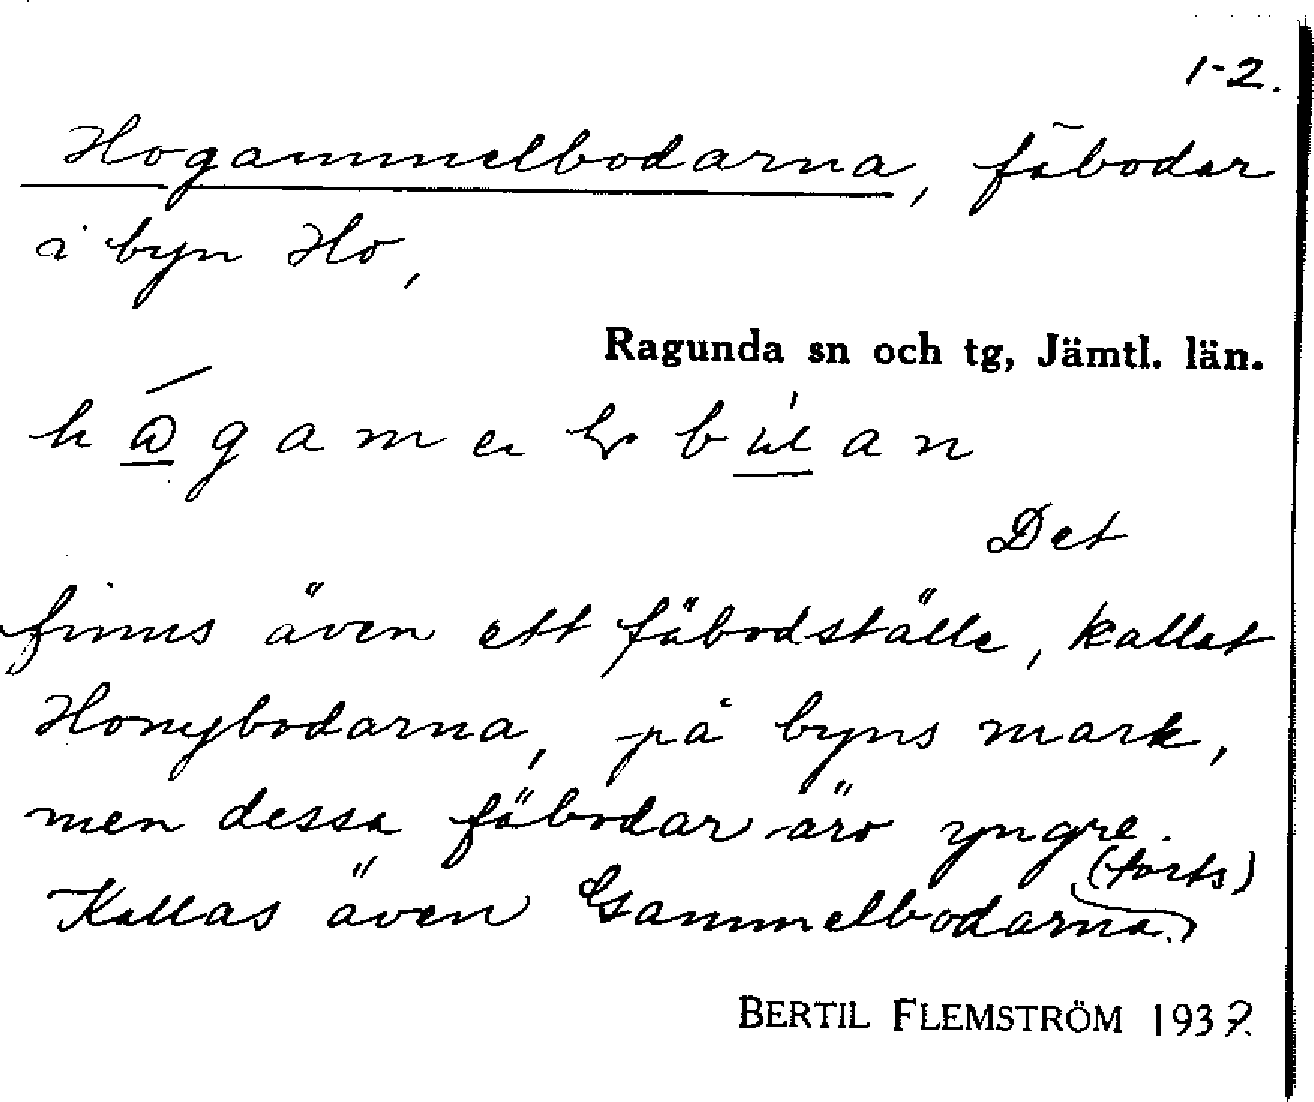 1-2.
Hogammelbodarna, fäbodar
i byn Ho,
Ragunda sn och tg, Jämtl. län.
Det
finns även ett fäbodställe, kallat
Honybodarna, på byns mark,
men dessa fäbodar äro yngre.
(forts)
Kallas även Gammelbodarna.
BERTIL FLEMSTRÖM 1937.